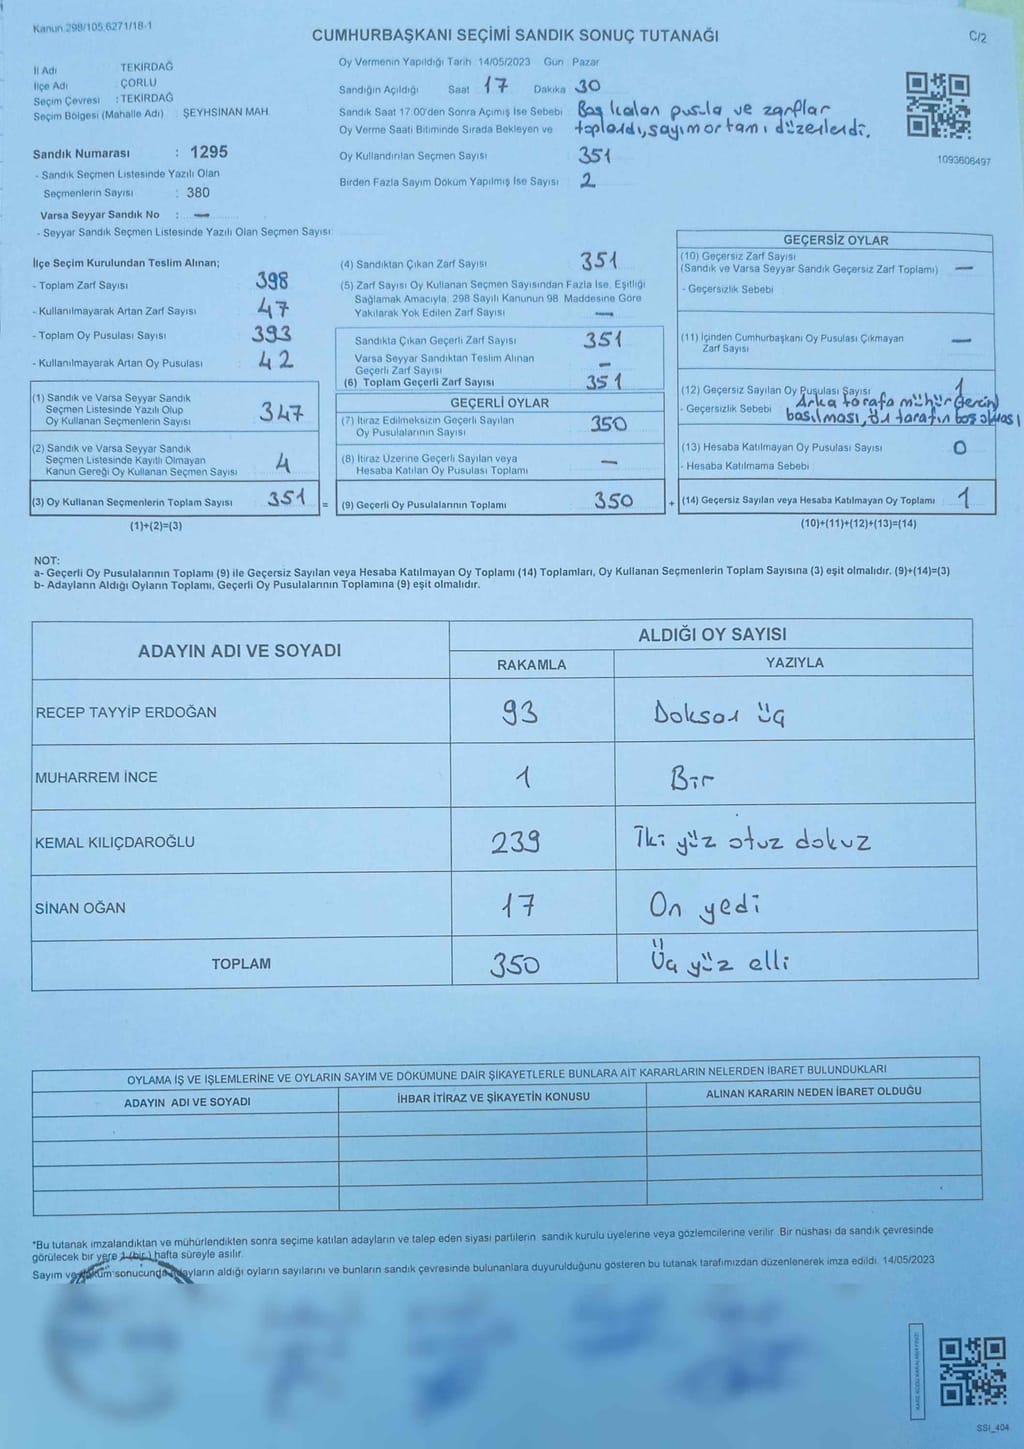 Kanun 298/105,6271/18-1
CUMHURBAŞKANI SEÇİMİ SANDIK SONUÇ TUTANAĞI
C/2
İl Adı TEKİRDAĞ
İlçe Adı ÇORLU
Seçim Çevresi : TEKİRDAĞ
Seçim Bölgesi (Mahalle Adı) ŞEYHSİNAN MAH
Sandık Numarası : 1295
- Sandık Seçmen Listesinde Yazılı Olan
Seçmenlerin Sayısı : 380
Varsa Seyyar Sandık No : —
- Seyyar Sandık Seçmen Listesinde Yazılı Olan Seçmen Sayısı
Oy Vermenin Yapıldığı Tarih 14/05/2023 Gün Pazar
Sandığın Açıldığı Saat 17 Dakika 30
Sandık Saat 17.00'den Sonra Açımış İse Sebebi Boş kalan pusula ve zarflar
Oy Verme Saati Bitiminde Sırada Bekleyen ve toplandı, sayım ortamı düzenlendi.
Oy Kullandırılan Seçmen Sayısı 351
Birden Fazla Sayım Döküm Yapılmış İse Sayısı 2
1093606497
İlçe Seçim Kurulundan Teslim Alınan;
- Toplam Zarf Sayısı 398
- Kullanılmayarak Artan Zarf Sayısı 47
- Toplam Oy Pusulası Sayısı 393
- Kullanılmayarak Artan Oy Pusulası 42
(1) Sandık ve Varsa Seyyar Sandık
Seçmen Listesinde Yazılı Olup
Oy Kullanan Seçmenlerin Sayısı 347
(2) Sandık ve Varsa Seyyar Sandık
Seçmen Listesinde Kayıtlı Olmayan
Kanun Gereği Oy Kullanan Seçmen Sayısı 4
(3) Oy Kullanan Seçmenlerin Toplam Sayısı 351 =
(1)+(2)=(3)
(4) Sandıktan Çıkan Zarf Sayısı 351
(5) Zarf Sayısı Oy Kullanan Seçmen Sayısından Fazla İse, Eşitliği
Sağlamak Amacıyla, 298 Sayılı Kanunun 98. Maddesine Göre
Yakılarak Yok Edilen Zarf Sayısı —
Sandıkta Çıkan Geçerli Zarf Sayısı 351
Varsa Seyyar Sandıktan Teslim Alınan
Geçerli Zarf Sayısı —
(6) Toplam Geçerli Zarf Sayısı 351
GEÇERLİ OYLAR
(7) İtiraz Edilmeksizin Geçerli Sayılan
Oy Pusulalarının Sayısı 350
(8) İtiraz Üzerine Geçerli Sayılan veya
Hesaba Katılan Oy Pusulası Toplamı —
(9) Geçerli Oy Pusulalarının Toplamı 350 +
GEÇERSİZ OYLAR
(10) Geçersiz Zarf Sayısı
(Sandık ve Varsa Seyyar Sandık Geçersiz Zarf Toplamı) —
- Geçersizlik Sebebi
(11) İçinden Cumhurbaşkanı Oy Pusulası Çıkmayan
Zarf Sayısı —
(12) Geçersiz Sayılan Oy Pusulası Sayısı 1
- Geçersizlik Sebebi Arka tarafa mühür
basılması, ön tarafın boş olması
(13) Hesaba Katılmayan Oy Pusulası Sayısı 0
- Hesaba Katılmama Sebebi
(14) Geçersiz Sayılan veya Hesaba Katılmayan Oy Toplamı 1
(10)+(11)+(12)+(13)=(14)
NOT:
a- Geçerli Oy Pusulalarının Toplamı (9) ile Geçersiz Sayılan veya Hesaba Katılmayan Oy Toplamı (14) Toplamları, Oy Kullanan Seçmenlerin Toplam Sayısına (3) eşit olmalıdır. (9)+(14)=(3)
b- Adayların Aldığı Oyların Toplamı, Geçerli Oy Pusulalarının Toplamına (9) eşit olmalıdır.
ADAYIN ADI VE SOYADI
ALDIĞI OY SAYISI
RAKAMLA YAZIYLA
RECEP TAYYİP ERDOĞAN 93 Doksan üç
MUHARREM İNCE 1 Bir
KEMAL KILIÇDAROĞLU 239 İki yüz otuz dokuz
SİNAN OĞAN 17 On yedi
TOPLAM 350 Üç yüz elli
OYLAMA İŞ VE İŞLEMLERİNE VE OYLARIN SAYIM VE DÖKÜMÜNE DAİR ŞİKAYETLERLE BUNLARA AİT KARARLARIN NELERDEN İBARET BULUNDUKLARI
ADAYIN ADI VE SOYADI İHBAR İTİRAZ VE ŞİKAYETİN KONUSU ALINAN KARARIN NEDEN İBARET OLDUĞU
*Bu tutanak imzalandıktan ve mühürlendikten sonra seçime katılan adayların ve talep eden siyasi partilerin sandık kurulu üyelerine veya gözlemcilerine verilir. Bir nüshası da sandık çevresinde
görülecek bir yere 1 (bir) hafta süreyle asılır.
Sayım ve döküm sonucunda adayların aldığı oyların sayılarını ve bunların sandık çevresinde bulunanlara duyurulduğunu gösteren bu tutanak tarafımızdan düzenlenerek imza edildi. 14/05/2023
SSI_404